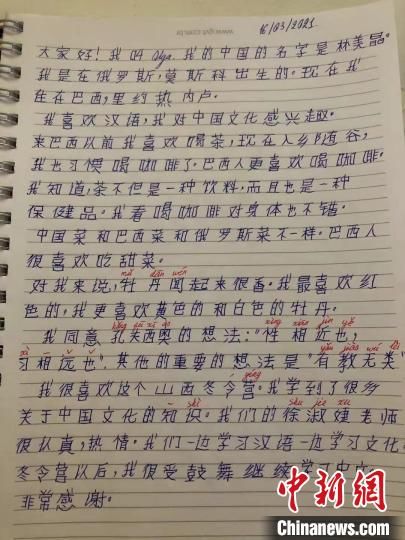 www.gvt.com.br
16/03/2021
大家好！我叫 Olga. 我的中国的名字是林美晶。
我是在俄罗斯，莫斯科出生的。现在我
住在巴西，里约热内卢。
我喜欢汉语，我对中国文化感兴趣。
来巴西以前我喜欢喝茶，现在入乡随谷，
我也习惯喝咖啡了。巴西人更喜欢喝咖啡。
我知道，茶不但是一种饮料，而且也是一种
保健品。我看喝咖啡对身体也不错。
中国菜和巴西菜和俄罗斯菜不一样。巴西人
很喜欢吃甜菜。
mǔ dān wén
对我来说，牡丹闻起来很香。我最喜欢红
色的，我更喜欢黄色的和白色的牡丹。
xìng xiāng jìn yě
我同意孔夫西奥的想法："性相近也，
xí xiāng yuǎn yě yǒu jiào wú lèi
习相远也". 其他的重要的想法是"有教无类"
yíng
我很喜欢这个山西冬令营。我学到了很多
shi shū jié xú
关于中国文化的知识。我们的徐淑婕老师
很认真，热情。我们一边学习汉语一边学习文化
冬令营以后，我很受鼓舞继续学习中文
非常感谢。
中新网
Chinanews.com